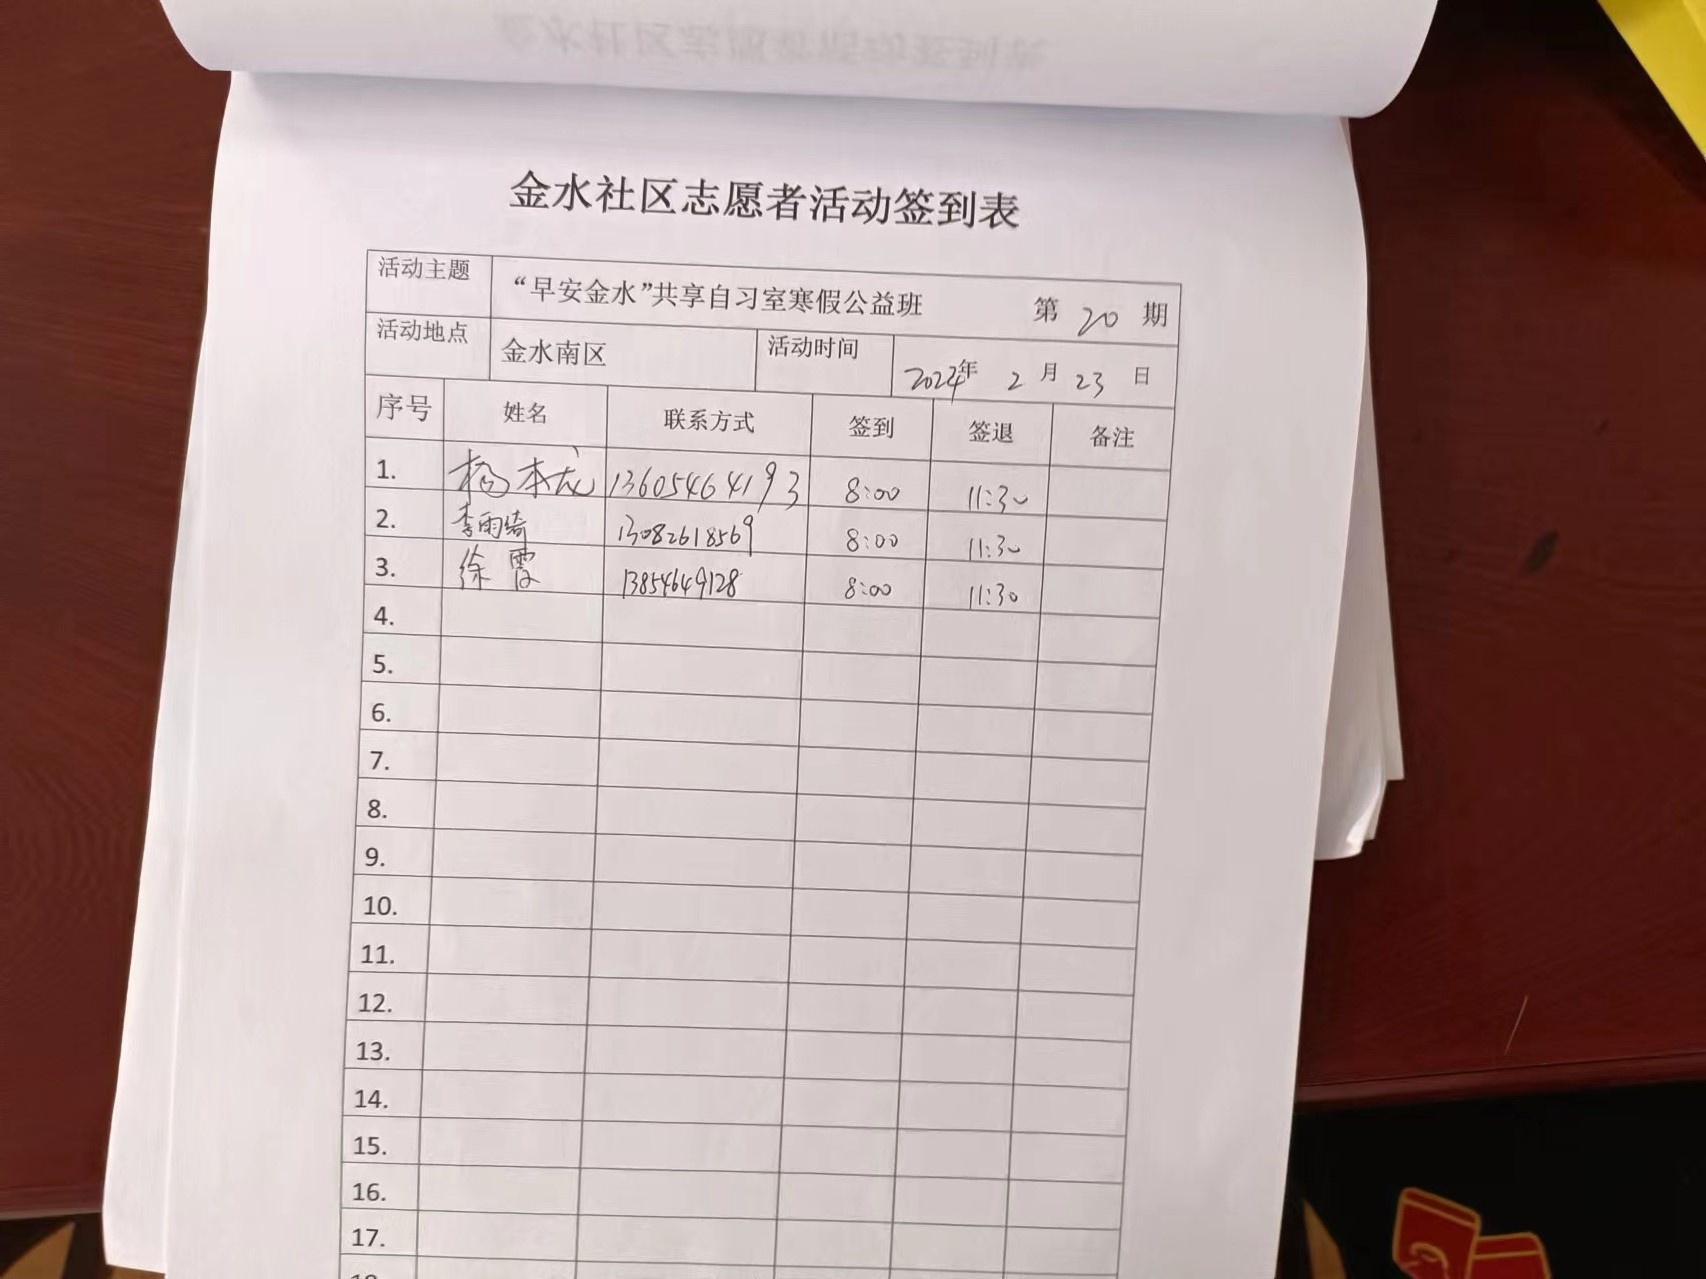 金水社区志愿者活动签到表
活动主题 “早安金水”共享自习室寒假公益班 第 20 期
活动地点 金水南区 活动时间 2024年 2 月 23 日
序号 姓名 联系方式 签到 签退 备注
1. 杨本龙 13605464193 8:00 11:30
2. 李雨绮 13082618569 8:00 11:30
3. 徐霞 13854649128 8:00 11:30
4.
5.
6.
7.
8.
9.
10.
11.
12.
13.
14.
15.
16.
17.
18.